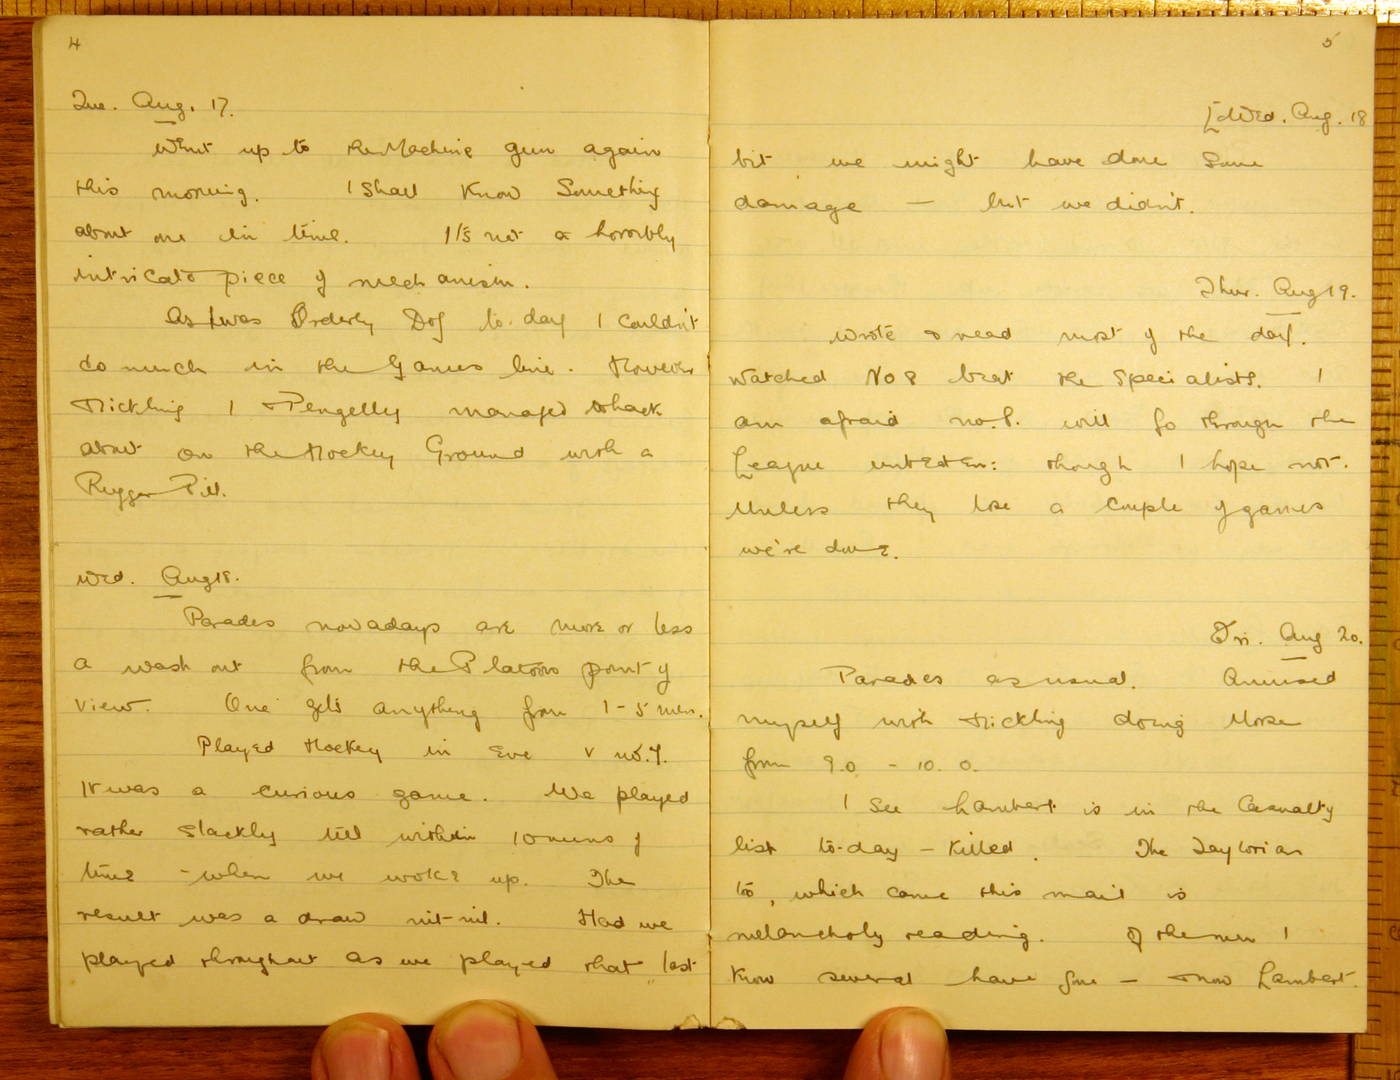 4
Tue. Aug. 17.
Went up to the Machine gun again
this morning. I shall know something
about one in time. It's not a horribly
intricate piece of mechanism.
As I was Orderly Dog to-day I couldn't
do much in the Games line. However
Hickling I & Pengelly managed to hack
about on the Hockey Ground with a
Rugger Pill.
Wed. Aug 18.
Parades nowadays are more or less
a wash out from the Platoons point of
view. One gets anything from 1-5 men.
Played Hockey in Eve v no. 7.
It was a curious game. We played
rather slackly till within 10 mins of
time - when we woke up. The
result was a draw nil-nil. Had we
played throughout as we played that last
5
Wed. Aug. 18
bit we might have done some
damage — but we didn't.
Thur. Aug 19.
Wrote & read most of the day.
Watched No 8 beat the Specialists. I
am afraid no. 8. will go through the
League unbeaten: though I hope not.
Unless they lose a couple of games
we're done.
Fri. Aug 20.
Parades as usual. Amused
myself with Hickling doing Morse
from 9.0 - 10. 0.
I see Lambert is in the Casualty
list to-day - killed. The Taylorian
too, which came this mail is
melancholy reading. Of the men I
know several have gone — & now Lambert.